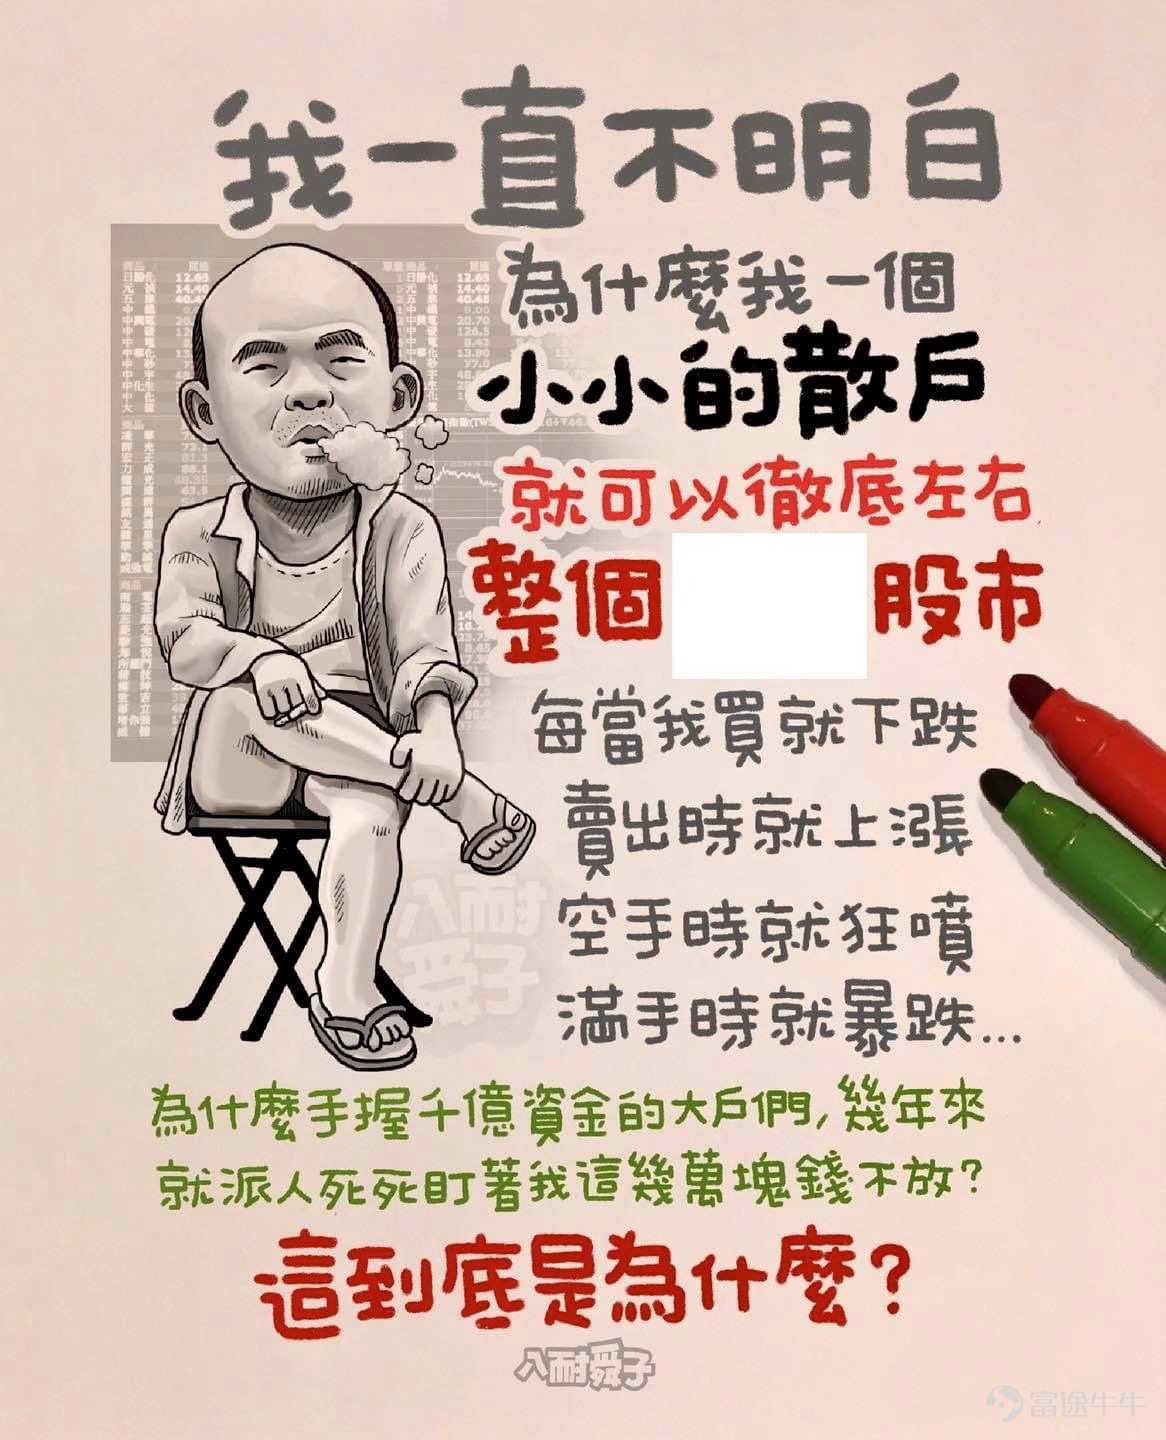 我一直不明白
為什麼我一個
小小的散戶
就可以徹底左右
整個 股市
每當我買就下跌
賣出時就上漲
空手時就狂噴
滿手時就暴跌...
為什麼手握千億資金的大戶們,幾年來
就派人死死盯著我這幾萬塊錢不放?
這到底是為什麼?
八耐舜子
八耐舜子
富途牛牛